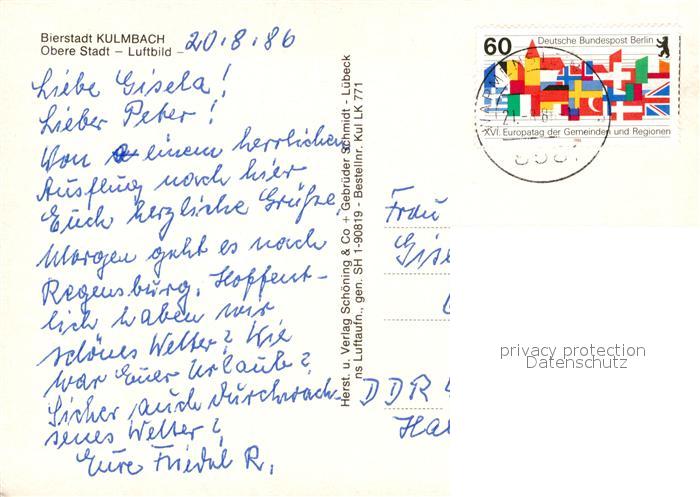 Bierstadt KULMBACH
Obere Stadt – Luftbild – 20.8.86
Liebe Gisela!
Lieber Peter!
Von einem herrlichen
Ausflug nach hier
Euch herzliche Grüße.
Morgen geht es nach
Regensburg. Hoffent-
lich haben wir
schönes Wetter? Wie
war Euer Urlaub?
Sicher auch durchwach-
senes Wetter?
Eure Friedel R.
Herst. u. Verlag Schöning & Co + Gebrüder Schmidt - Lübeck
ns Luftaufn., gen. SH 1-90819 - Bestellnr. Kul LK 771
60 Deutsche Bundespost Berlin
XVI. Europatag der Gemeinden und Regionen
Frau
Gise
DDR
Hal
privacy protection
Datenschutz